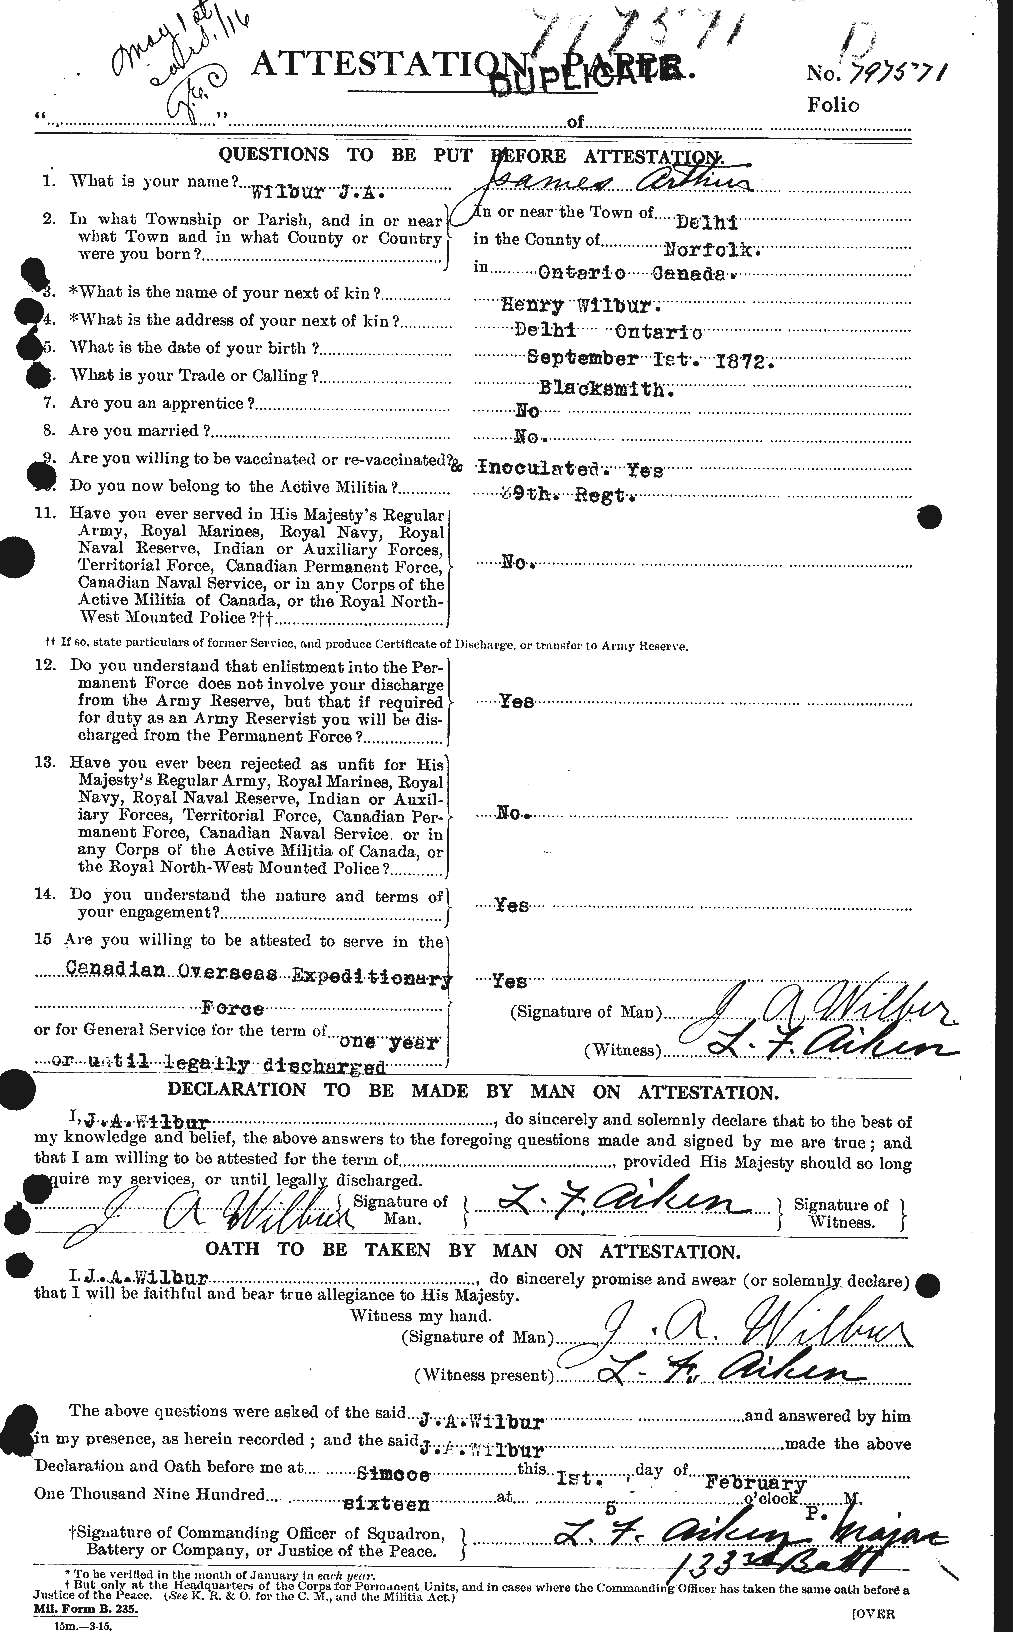 May 1st
797571
ATTESTATION PAPER.
DUPLICATE
No. 797571
Folio
"..............." of
QUESTIONS TO BE PUT BEFORE ATTESTATION.
1. What is your name? Wilbur J.A. James Arthur
2. In what Township or Parish, and in or near what Town and in what County or Country were you born?
In or near the Town of Delhi
in the County of Norfolk.
in Ontario Canada.
3. *What is the name of your next of kin? Henry Wilbur.
4. *What is the address of your next of kin? Delhi Ontario
5. What is the date of your birth? September 1st. 1872.
What is your Trade or Calling? Blacksmith.
7. Are you an apprentice? No
8. Are you married? No.
9. Are you willing to be vaccinated or re-vaccinated? & Inoculated. Yes
Do you now belong to the Active Militia? 39th. Regt.
11. Have you ever served in His Majesty's Regular
Army, Royal Marines, Royal Navy, Royal
Naval Reserve, Indian or Auxiliary Forces,
Territorial Force, Canadian Permanent Force,
Canadian Naval Service, or in any Corps of the
Active Militia of Canada, or the Royal North-
West Mounted Police?††
No.
†† If so, state particulars of former Service, and produce Certificate of Discharge, or transfer to Army Reserve.
12. Do you understand that enlistment into the Per-
manent Force does not involve your discharge
from the Army Reserve, but that if required
for duty as an Army Reservist you will be dis-
charged from the Permanent Force?
Yes
13. Have you ever been rejected as unfit for His
Majesty's Regular Army, Royal Marines, Royal
Navy, Royal Naval Reserve, Indian or Auxil-
iary Forces, Territorial Force, Canadian Per-
manent Force, Canadian Naval Service. or in
any Corps of the Active Militia of Canada, or
the Royal North-West Mounted Police?
No.
14. Do you understand the nature and terms of
your engagement?
Yes
15 Are you willing to be attested to serve in the
Canadian Overseas Expeditionary Yes
Force
(Signature of Man) J A Wilbur
or for General Service for the term of one year
(Witness) L. F. Aiken
or until legally discharged
DECLARATION TO BE MADE BY MAN ON ATTESTATION.
I, J.A.Wilbur, do sincerely and solemnly declare that to the best of
my knowledge and belief, the above answers to the foregoing questions made and signed by me are true; and
that I am willing to be attested for the term of, provided His Majesty should so long
quire my services, or until legally discharged.
J A Wilbur Signature of Man. L. F. Aiken Signature of Witness.
OATH TO BE TAKEN BY MAN ON ATTESTATION.
I. J.A.Wilbur, do sincerely promise and swear (or solemnly declare)
that I will be faithful and bear true allegiance to His Majesty.
Witness my hand.
(Signature of Man) J. A. Wilbur
(Witness present) L. F. Aiken
The above questions were asked of the said J.A.Wilbur and answered by him
in my presence, as herein recorded; and the said J.A.Wilbur made the above
Declaration and Oath before me at Simcoe this 1st. day of February
One Thousand Nine Hundred sixteen at 5 o'clock P. M.
†Signature of Commanding Officer of Squadron,
Battery or Company, or Justice of the Peace.
L. F. Aiken Major
133rd Batt
* To be verified in the month of January in each year.
† But only at the Headquarters of the Corps for Permanent Units, and in cases where the Commanding Officer has taken the same oath before a
Justice of the Peace. (See K. R. & O. for the C. M., and the Militia Act.)
Mil. Form B. 235.
15m.—3-15.
[OVER